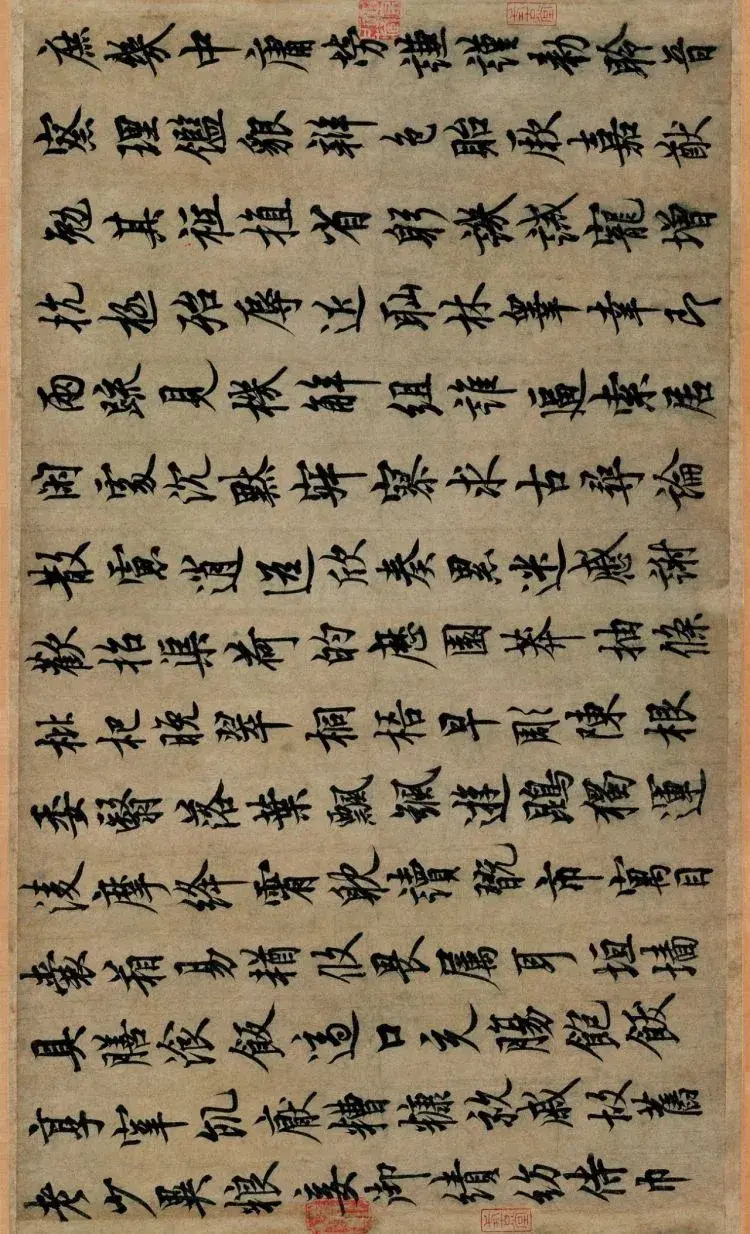 庶幾中庸勞謙謹勅聆音
察理鑑貌辯色貽厥嘉猷
勉其祗植省躬譏誡寵增
抗極殆辱近耻林睾幸即
兩疏見機解組誰逼索居
閑處沉默寂寥求古尋論
散慮逍遥欣奏累遣慼謝
歡招渠荷的歷園莽抽條
枇杷晚翠桐梧早彫陳根
委翳落葉飄颻遊鵾獨運
凌摩絳霄耽讀翫市寓目
囊箱易輶攸畏屬耳垣墙
具膳飡飯適口充腸飽飫
享宰飢厭糟糠親戚故舊
老少異粮妾御績紡侍巾